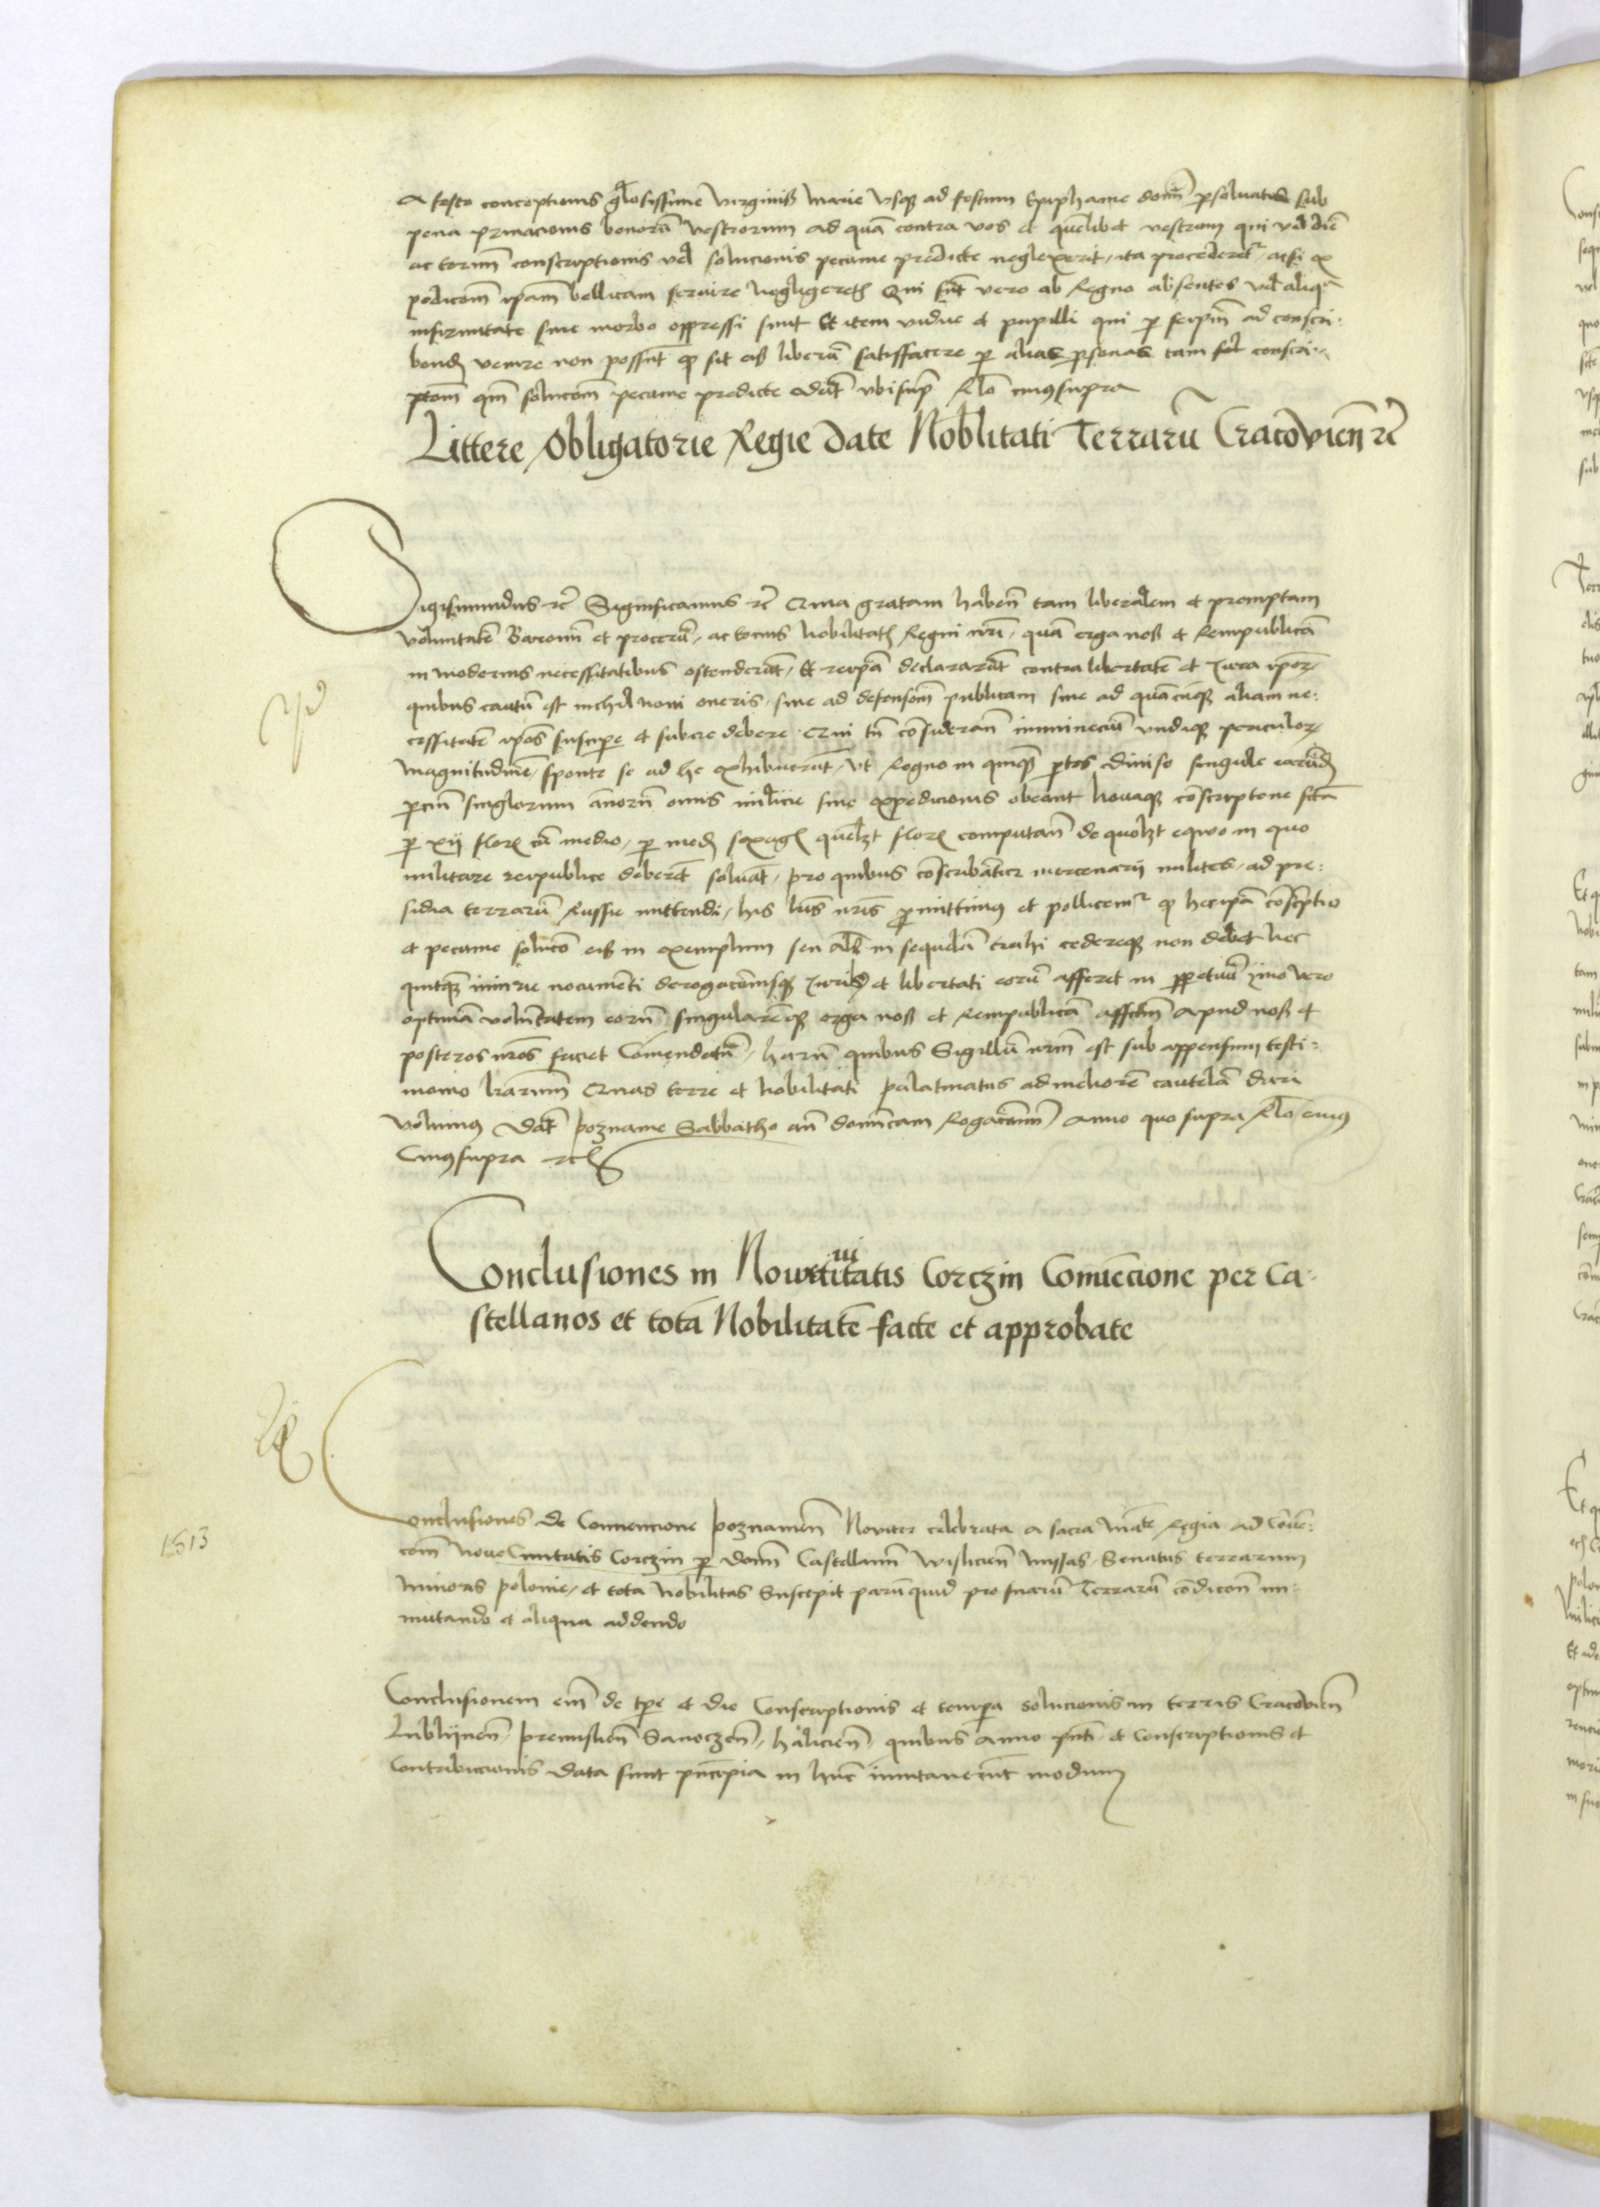 A festo conceptionis gl'osissime virginis Marie vsq3 ad festum Epiphanie domī persoluatis sub
pena priuacionis bonorū vestrorum ad quā contra vos et quēlibet vestrum qui vel diē
ac formā conscriptionis vel solucionis pecunie predicte neglexerit, ita procederet', acsi ex
pedicionē ip̄am bellicam seruire negligeret Qui sūt vero ab Regno absentes vel aliqᵃ
infirmitate siue morbo oppressi sunt Et item vidue et pupilli qui per seip̄m ad conscri:
bend venire non possūt qʒ sit eis liberū satisffacere per alias personas tam conscri
ptōm qm̄ solucōm pecunie predicte Datum vbi supra Rlo cuius supra
Littere obligatorie Regie Date Nobilitati Terrarū Cracovien̄ rc̄
Sigismundus rc̄ Significamus rc̄ Quia gratam haben̄ tam liberalem et promptam
voluntatē Baronum et procerū, ac tocius nobilitatis Regni nr̄i, quā erga nos et Rempublicā
in modernis necessitatibus ostenderūt, Et reip̄a declararūt contra libertatē et Iura ip̄oꝝ
quibus cautū est nichil noui oneris, siue ad defensionē publicam siue ad quācūq3 aliam ne:
cessitatē ip̄os suscipe et subire debere Qui tn̄ cōsideran̄ imminenciū vndiq3 periculoꝝ
magnitudinē, sponte se ad hec exhibuerūt, vt Regno in quinq3 ptes diuiso singule earūd
p̄cium singulorum annorum onus milicie siue expedicionis obeant nouaq3 cōscriptione fctā
per xij floren̄ cū medio, per med sexagen̄ quelꝫt floren̄ computan̄ de quolꝫt equo in quo
militare reipublice deberēt soluāt, pro quibus cōscribātur mercenarij milites, ad pre:
sidia terrarū Russie mittendi, his lr̄is nr̄is promittimus et pollicemr̄ qʒ hec ip̄a cōscriptio
et pecunie solucō eis in exemplum seu als in sequelā trahi cedereq3 non debet nec
quitq3 iniurie nocumenti derogacōnisq3 Iuribus et libertati eorū afferet in perpetuū ymo vero
optimā voluntatem eorū, singularēq3 erga nos et Rempublicā affectum apud nos et
posteros nr̄os faciet Comendatū, harū quibus Sigillū nrm̄ est sub appensum testi:
monio lr̄arum Quas terre et nobilitati palatinatus ad meliorē cautelā dari
volumus Dat̄ Poznanie Sabbatho an̄ dominicam Rogacionum Anno quo supra Rlo eiius
Cuius supra rc̄
Conclusiones in Nouetiuitatis Corczin Conuēcione per Ca:
stellanos et totā Nobilitatē facte et approbate
1513
Conclusiones de Conuencione Poznanien̄ Nouiter celebrata a sacra Mate Regia ad Cōuē:
cōm noue Ciuitatis Corczin per Dominū Castellanum Wislicien̄ missas, Senatus terrarum
minoris Polonie, et tota Nobilitas Suscepit parū quid pro suarū Terrarū cōdicōne im:
mutando et aliqua addendo
Conclusionem em̄ de tp̄e et die Conscriptionis et tempora Solucionis in terris Cracovien̄
Lublijnen̄ Premislien̄ Sanoczen̄, Halicien̄ quibus anno p̄nti et Conscriptionis et
Contribucionis data sunt principia in hūc immutauerūt modum